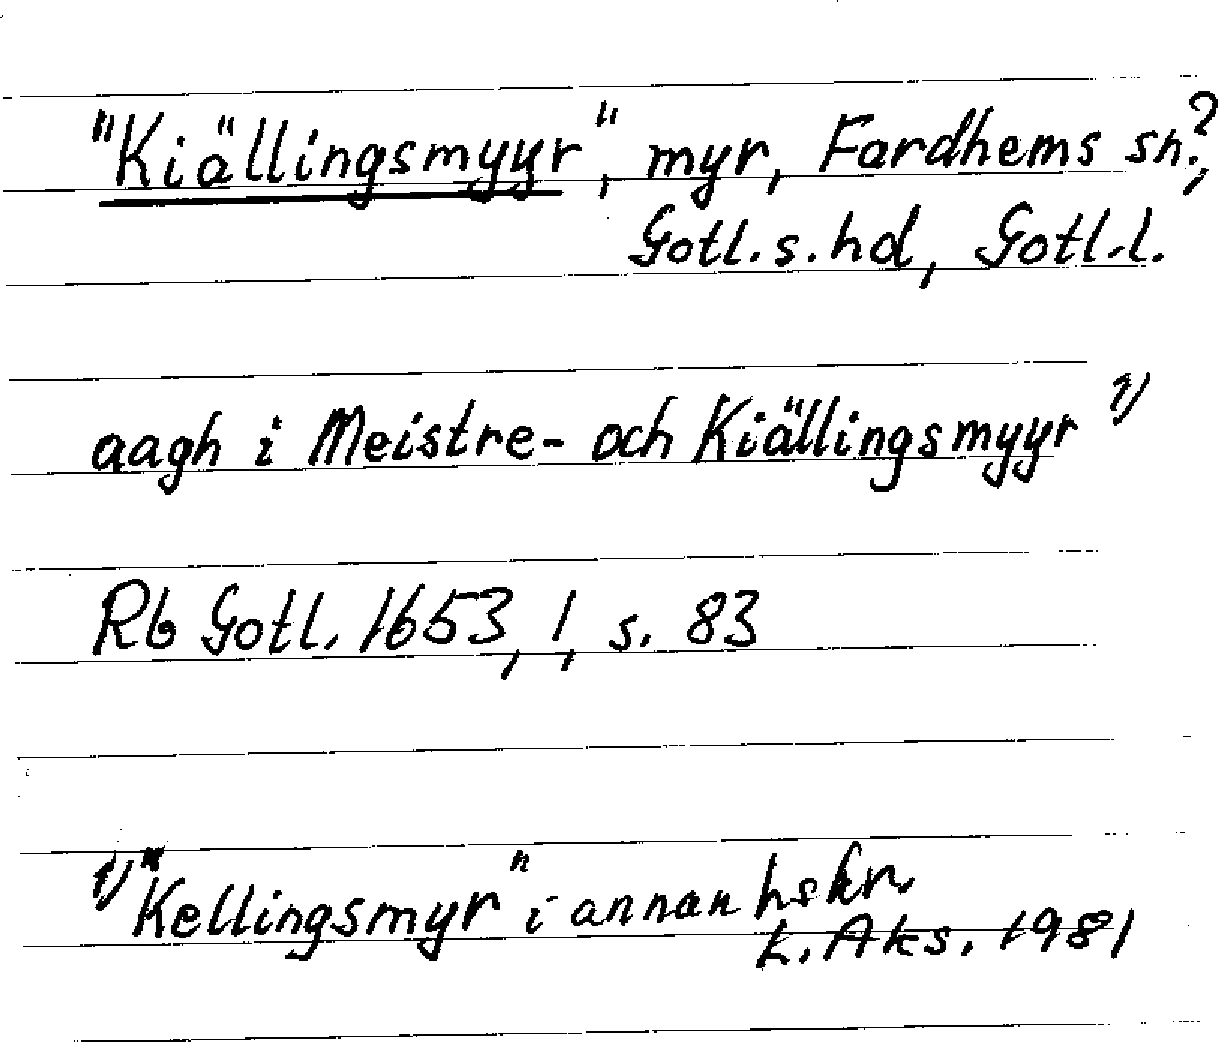 "Kiällingsmyyr", myr, Fardhems sn?,
Gotl. s. hd, Gotl. l.
aagh i Meistre- och Kiällingsmyyr 1)
Rb Gotl. 1653, 1, s. 83
1) "Kellingsmyr" i annan hskr.
L. Aks. 1981